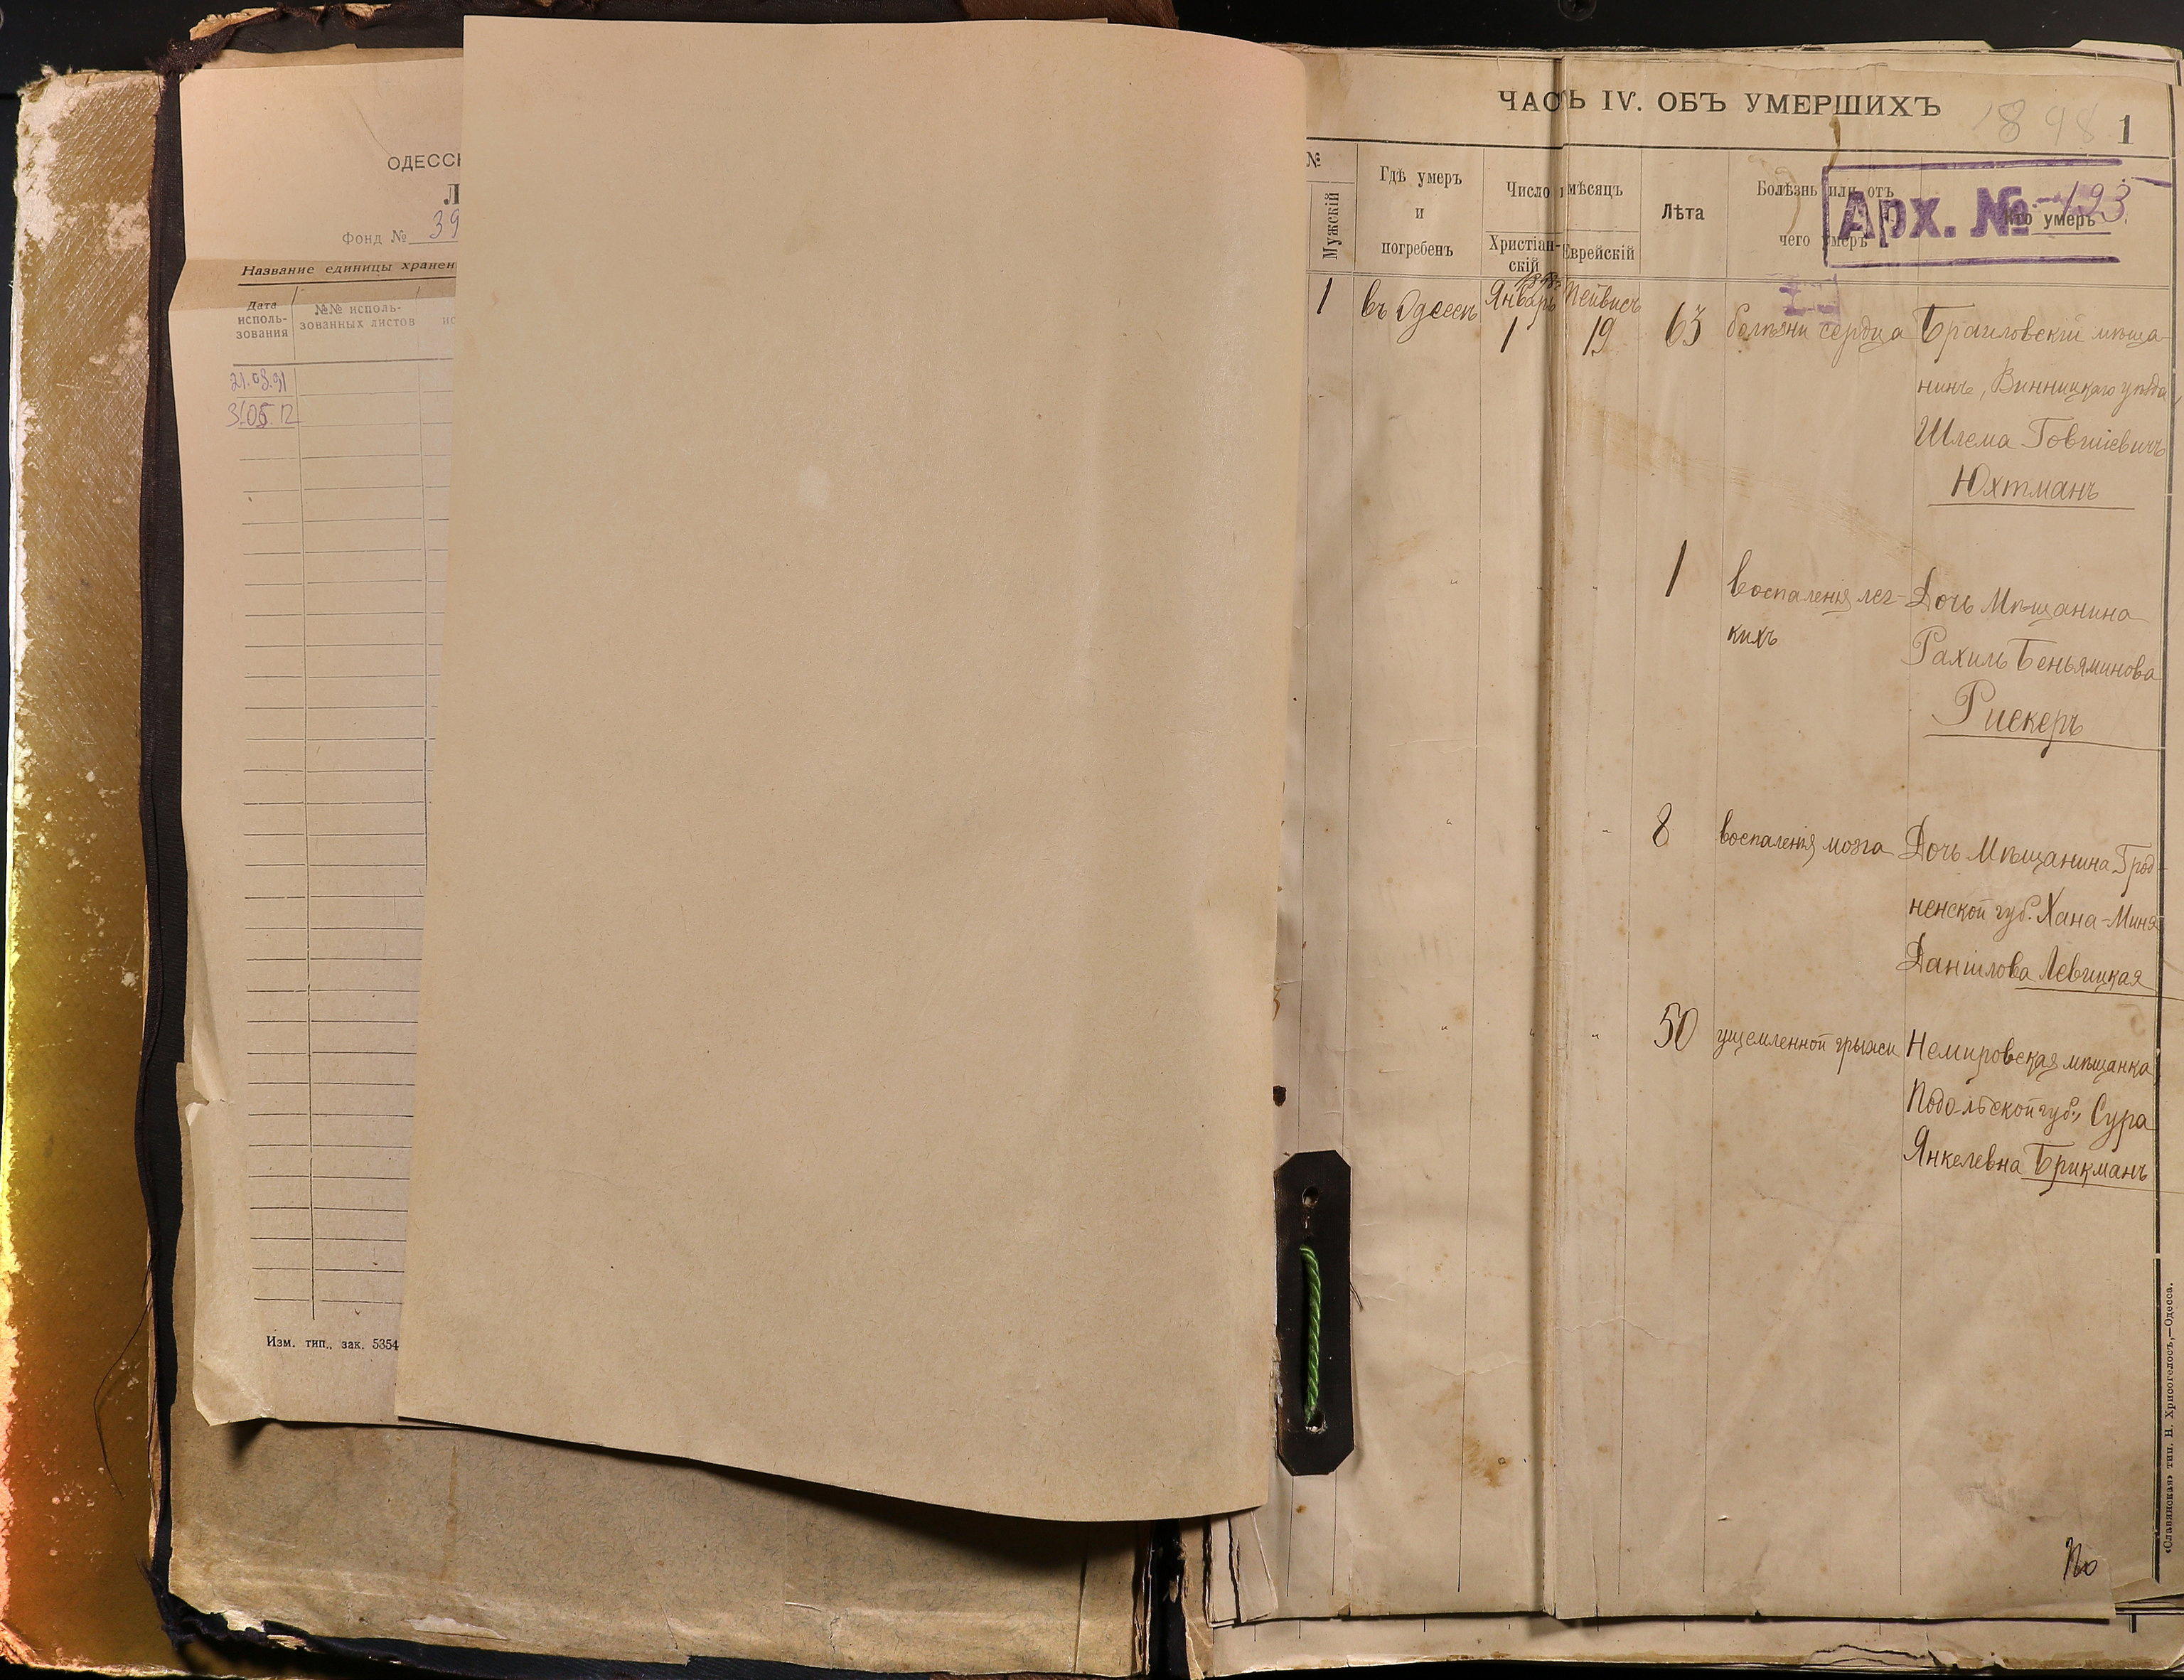 ОДЕССК
Л
Фонд № 39
Название единицы хранен
Дата исполь-зования
№№ исполь-зованных листов
ис
21.03.91
31.05.12
Изм. тип., зак. 5354
ЧАСТЬ IV. ОБЪ УМЕРШИХЪ
1898
1
Арх. № 193
№
Мужскій
Гдѣ умеръ и погребенъ
Число и мѣсяцъ
Христіан-скій
Еврейскій
Лѣта
Болѣзнь или отъ чего умеръ
Кто умеръ
1 въ Одессѣ Январь 1 Тейвисъ 19 63 болѣзни сердца Браиловскій мѣща-
нинъ, Винницкаго уѣзда,
Шлема Говшіевичъ
Юхтманъ
" " 1 воспаленія лег- Дочь Мѣщанина
кихъ Рахиль Беньяминова
Рискеръ
" " 8 воспаленія мозга Дочь Мѣщанина Грод-
ненской губ. Хана-Миня
Данилова Левицкая
" " " 50 ущемленной грыжи Немировская мѣщанка,
Подольской губ., Сура
Янкелевна Брикманъ
По
«Славянская» тип. Н. Хрисогелосъ,—Одесса.